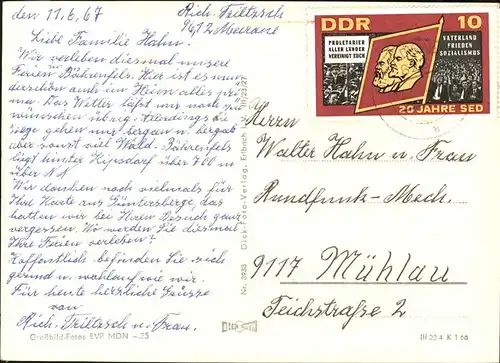 den 11.6.67
Rich. Trültzsch
9612 Meerane
Liebe Familie Hahn.
Wir verleben diesmal unsere
Ferien Bährenfels. Hier ist es wun
derschön auch im Heim alles pri
ma. Das Wetter läßt nur noch zu
wünschen übrig. Allerdings die
Wege gehen nur bergan u. bergab
aber sonst viel Wald. Bährenfels
liegt hinter Kipsdorf über 700 m
über NN
Wir danken noch vielmals für
Ihre Karte aus Güntersberge, das
hatten wir bei Ihren Besuch ganz
vergessen. Wo werden Sie diesmal
Ihre Ferien verleben?
Hoffentlich befinden Sie sich
gesund u. wohlauf wie wir.
Für heute herzliche Grüsse
von
Rich. Trültzsch u. Frau.
Großbild-Fotos EVP MDN -.25
Nr. 3933 Dick-Foto-Verlag, Erlbach i. V.
DDR 10
PROLETARIER
ALLER LÄNDER
VEREINIGT EUCH
VATERLAND
FRIEDEN
SOZIALISMUS
20 JAHRE SED
Herrn
Walter Hahn u. Frau
Rundfunk-Mech.
9117 Mühlau
Teichstraße 2
III 22 4 K 1 66